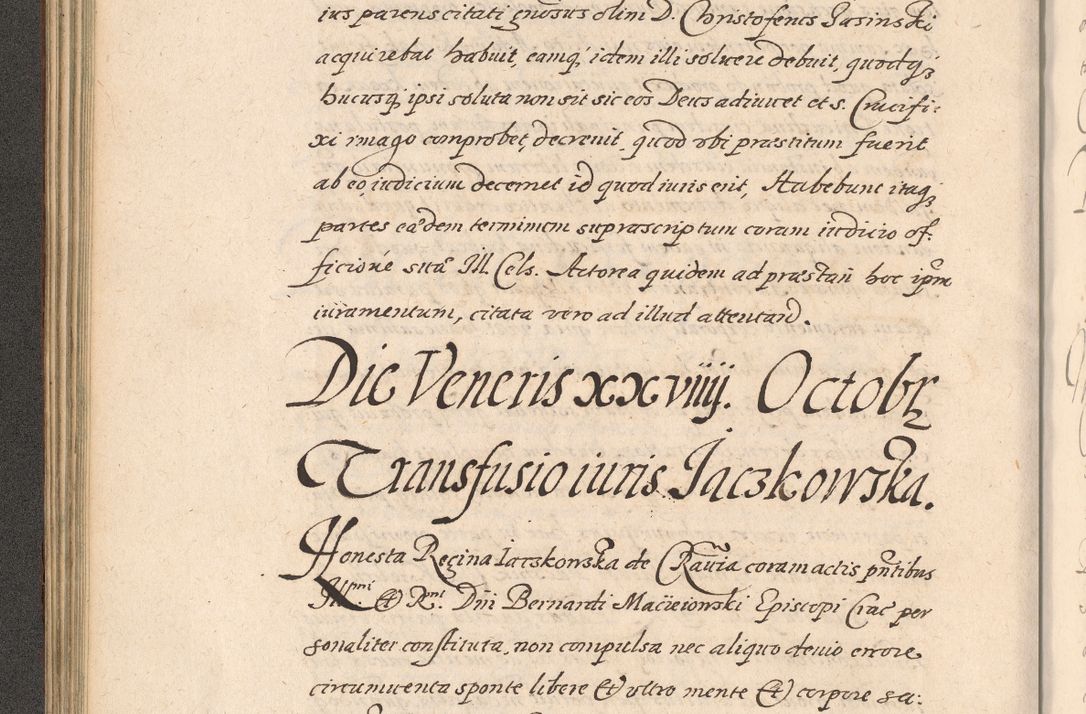 ius parens citati gnosus olim D. Christoferus Jasinski
acquirebat habuit, eamq́ idem illi soluere debuit, quodq́ꝫ
hucusq́ ipsi soluta non sit sic eos Deus adiuuet et s. Crucifi:
xi imago comprobet, decreuit, quod ubi præstitum fuerit
ab eo, iudicium decernet id quod iuris erit, Habebunt itaqꝫ
partes eãdem terminum suprascriptum coram iudicio of:
ficioñe suæ Ill. Cels. Actorea quidem ad præstañ hoc ipm
iuramentum, citata vero ad illud attentand.
Die Veneris xxviiij. Octobr
Transfusio iuris Jaczkowska.
Honesta Regina Iaczkowska de Rawia coram actis pñtibus
Illmi. Et Rmi. Dñi Bernardi Macieiowski Episcopi Crac per
sonaliter constituta, non compulsa nec aliquo deuio errore
circumuenta sponte libere Et vltro mente Et corpore sa: